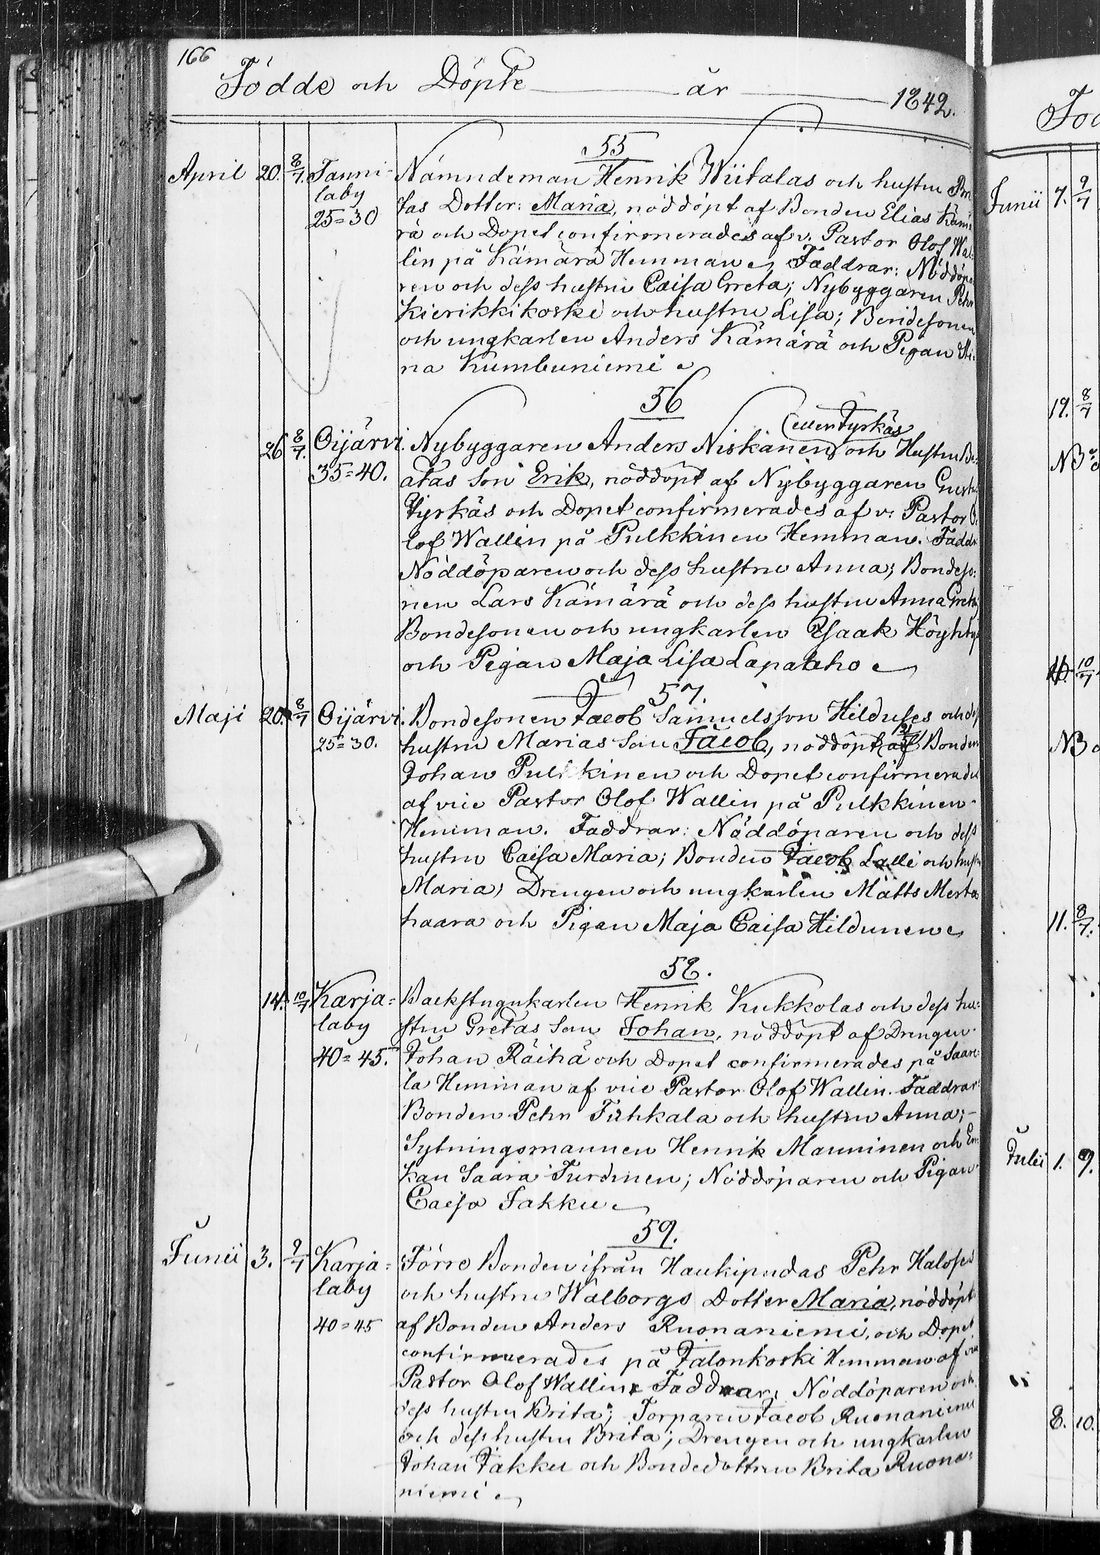 166
Födde och Döpte år 1842.
55
April 20. 8/7. Tannilaby 25=30
Nämndeman Henrik Wiitalas och hustru
tas Dotter: Maria, nöddöpt af Bonden Elias Kämä
rä och Dopet confirmerades af v. Pastor Olof Wal
lin på Kämärä Hemman. Faddrar: Nöddöpa
ren och dess hustru Caisa Greta; Nybyggaren Pehr
Kierikkikoski och hustru Lisa; Bondesonen
och ungkarlen Anders Kämärä och Pigan Sti
na Kumbuniemi
56
(eller Tyrkäs
26 8/7. Oijärvi 35=40.
Nybyggaren Anders Niskanen) och Hustru Be
atas Son Erik, nöddöpt af Nybyggaren Gust
Tyrkäs och Dopet confirmerades af v: Pastor O
lof Wallin på Pulkkinen Hemman. Faddr
Nöddöparen och dess hustru Anna; Bondeso
nen Lars Kämärä och dess hustru Anna Greta
Bondesonen och ungkarlen Isaak Höyhtyä
och Pigan Maja Lisa Lapalaho
57.
Maji 20. 8/7 Oijärvi. 25=30.
Bondesonen Jacob Samuelsson Hilduses och dess
hustru Marias Son Jacob, nöddöpt af Bonden
Johan Pulkkinen och Dopet confirmerades
af vice Pastor Olof Wallin på Pulkkinen
Hemman. Faddrar: Nöddöparen och dess
hustru Caisa Maria; Bonden Jacob Lalli och hustru
Maria; Drengen och ungkarlen Matts Merta
haara och Pigan Maja Caisa Hildunen
58.
14. 10/7 Karjalaby 40=45.
Backstugukarlen Henrik Kukkolas och dess hu
stru Gretas Son Johan, nöddöpt af Drengen
Johan Räihä och Dopet confirmerades på Saare
la Hemman af vice Pastor Olof Wallin. Faddrar:
Bonden Pehr Tuhkala och hustru Anna;
Sytningsmannen Henrik Manninen och En
kan Saara Turdinen; Nöddöparen och Pigan
Caisa Jakku
59.
Junii 3. 9/7 Karjalaby 40=45
Förre Bonden ifrån Haukipudas Pehr Halosi
och hustru Walborgs Dotter Maria, nöddöpt
af Bonden Anders Ruonaniemi, och Dopet
confirmerades på Jalonkoski Hemman af vice
Pastor Olof Wallin. Faddrar: Nöddöparen och
dess hustru Brita; Torparen Jacob Ruonaniemi
och dess hustru Brita; Drengen och ungkarlen
Johan Jakku och Bondedottren Brita Ruona
niemi
Junii 7. 9/7
19. 8/7
N3
10/7
N3
11. 8/7.
Julii 1. 9.
8. 10.